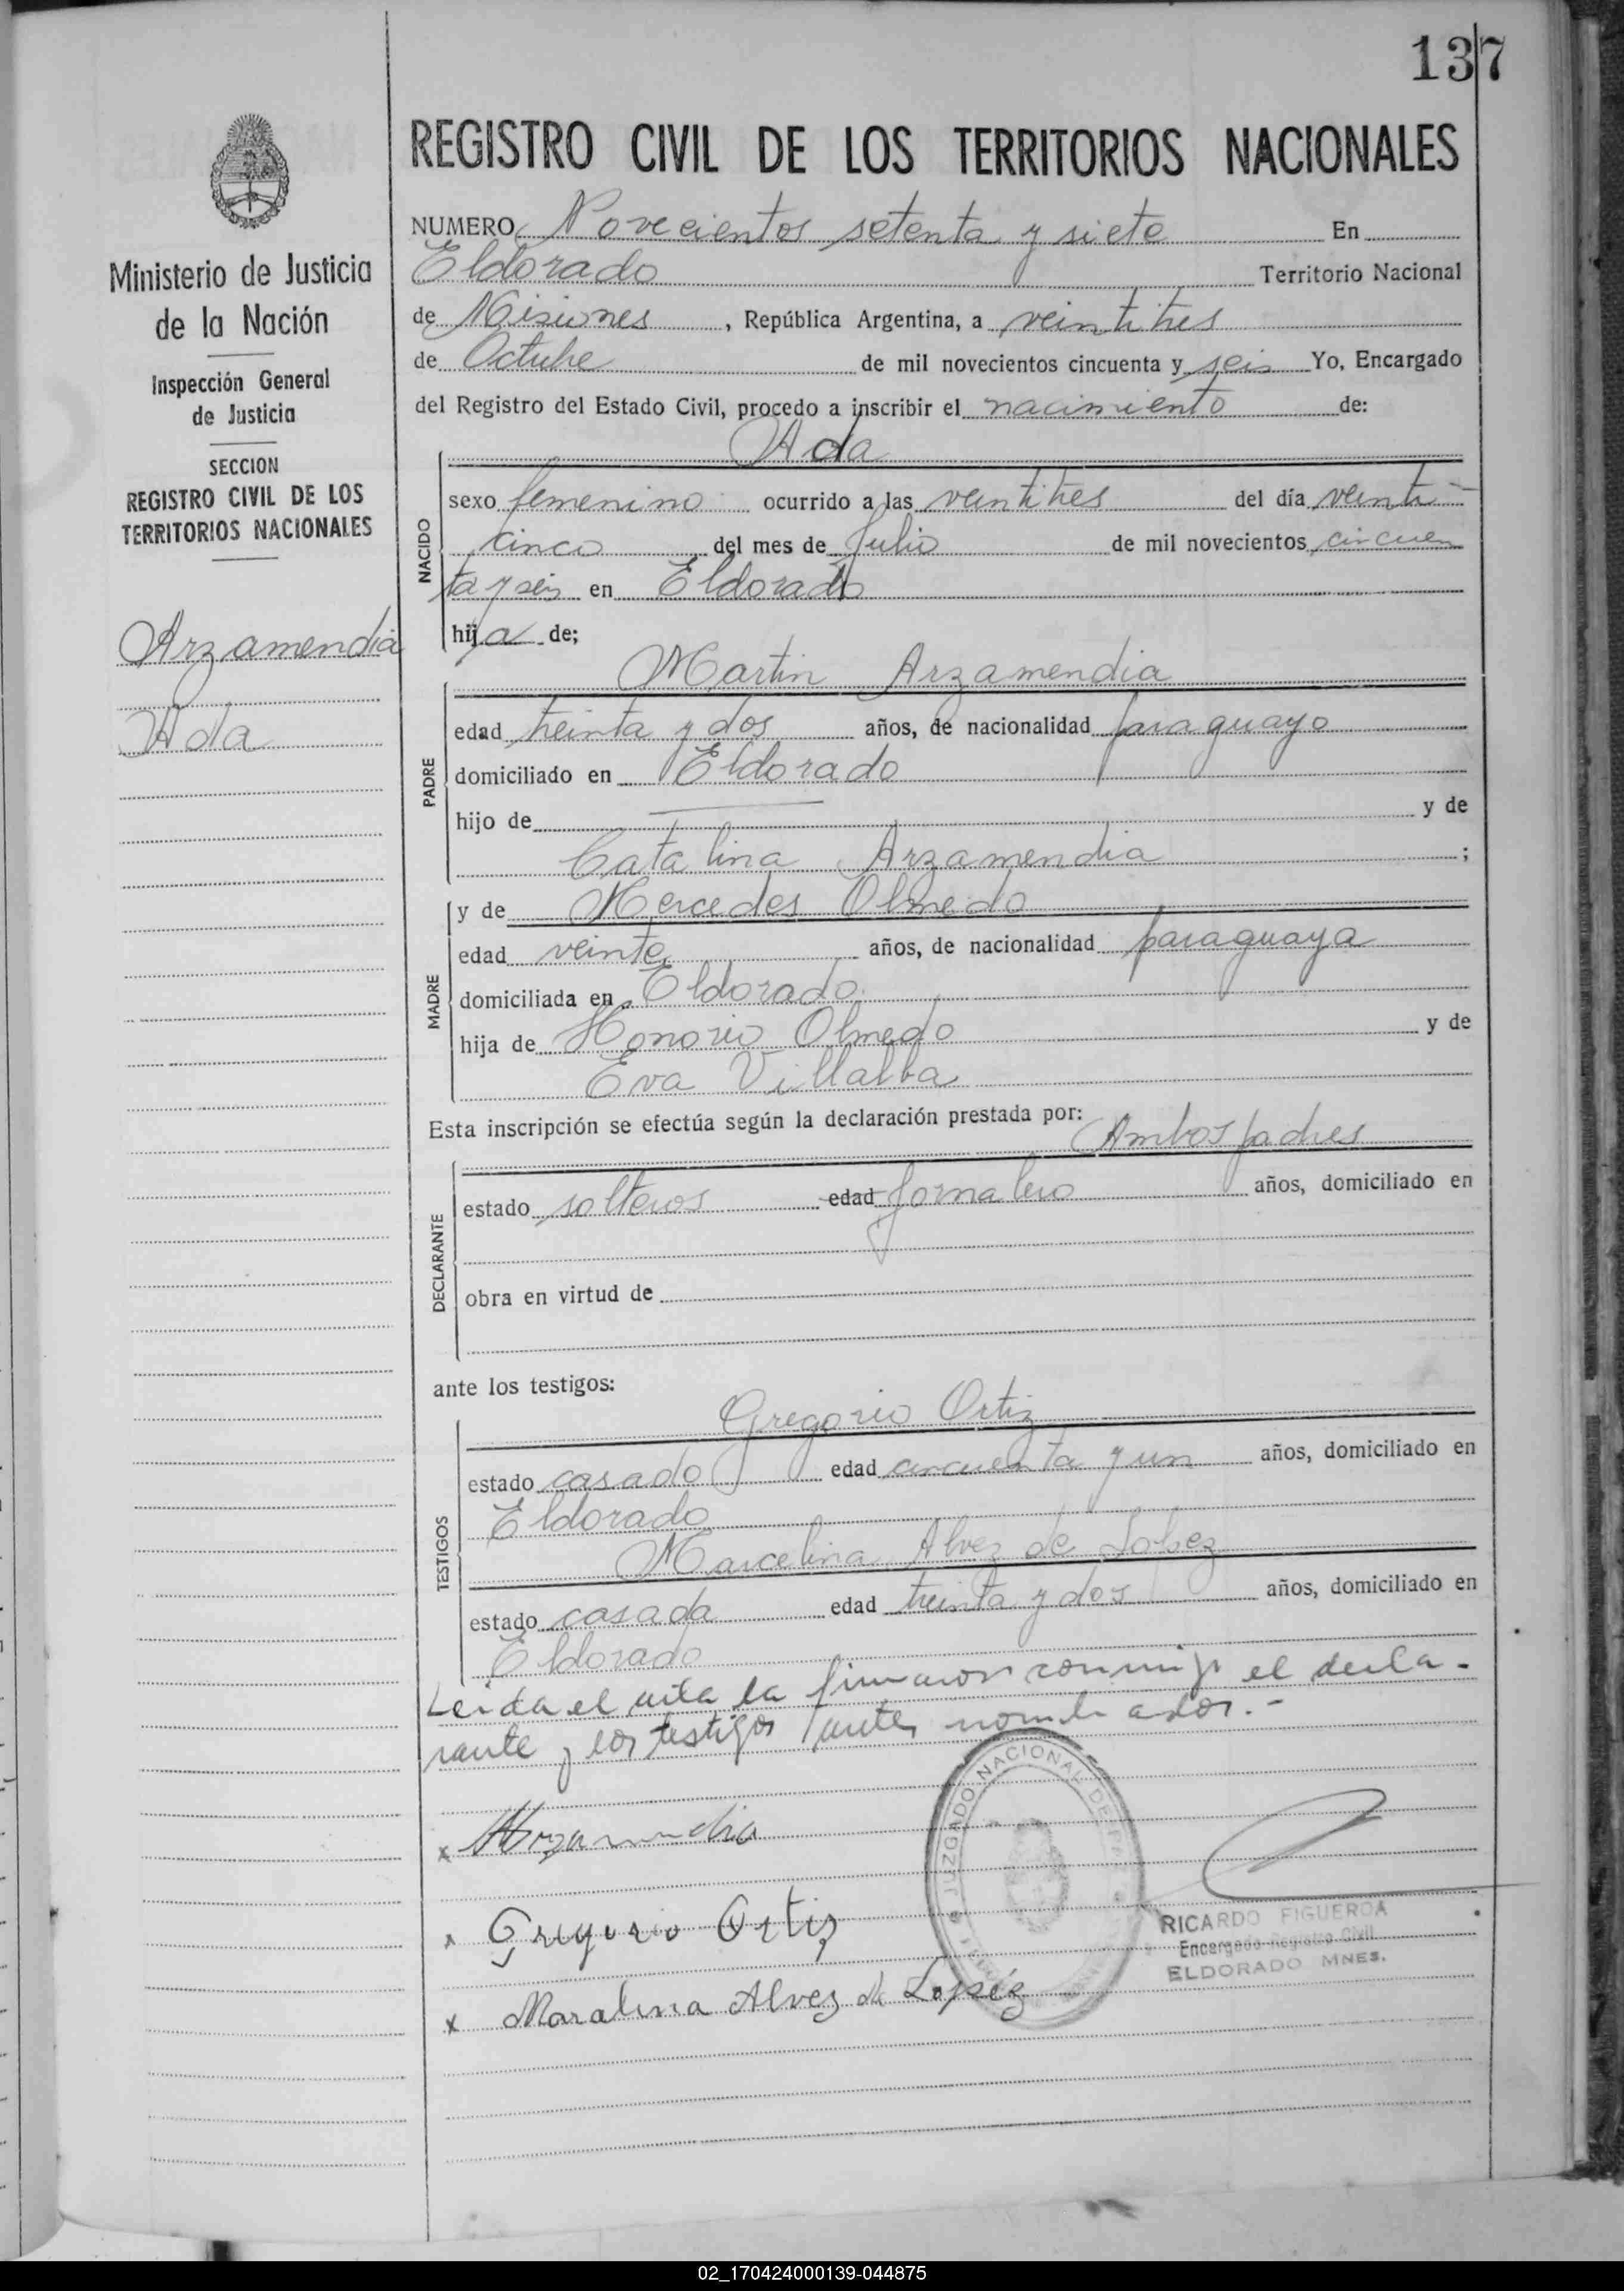 137
REGISTRO CIVIL DE LOS TERRITORIOS NACIONALES
Ministerio de Justicia
de la Nación
Inspección General
de Justicia
SECCION
REGISTRO CIVIL DE LOS
TERRITORIOS NACIONALES
Arzamendia
Ada
NUMERO Novecientos setenta y siete En
Eldorado Territorio Nacional
de Misiones, República Argentina, a veintitres
de Octubre de mil novecientos cincuenta y seis Yo, Encargado
del Registro del Estado Civil, procedo a inscribir el nacimiento de:
Ada
NACIDO
sexo femenino ocurrido a las veintitres del día veinti-
cinco del mes de Julio de mil novecientos cincuen
ta y seis en Eldorado
hija de;
Martin Arzamendia
PADRE
edad treinta y dos años, de nacionalidad paraguayo
domiciliado en Eldorado
hijo de y de
Catalina Arzamendia ;
y de Mercedes Olmedo
MADRE
edad veinte años, de nacionalidad paraguaya
domiciliada en Eldorado
hija de Honorio Olmedo y de
Eva Villalba
Esta inscripción se efectúa según la declaración prestada por:
Ambos padres
DECLARANTE
estado solteros edad jornalero años, domiciliado en
obra en virtud de
ante los testigos:
Gregorio Ortiz
TESTIGOS
estado casado edad cincuenta y un años, domiciliado en
Eldorado
Marcelina Alvez de Lopez
estado casada edad treinta y dos años, domiciliado en
Eldorado
Leida el acta la firmaron conmigo el decla-
rante y los testigos antes nombrados.-
x Arzamendia
x Gregorio Ortiz
x Marcelina Alvez de Lopéz
JUZGADO NACIONAL DE PAZ
RICARDO FIGUEROA
Encargado Registro Civil
ELDORADO MNES.
02_170424000139-044875